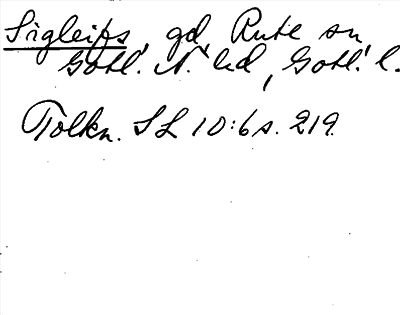 Sigleifs, gd, Rute sn,
Gotl. N. hd, Gotl. l.
Tolkn. SL 10:6 s. 219.